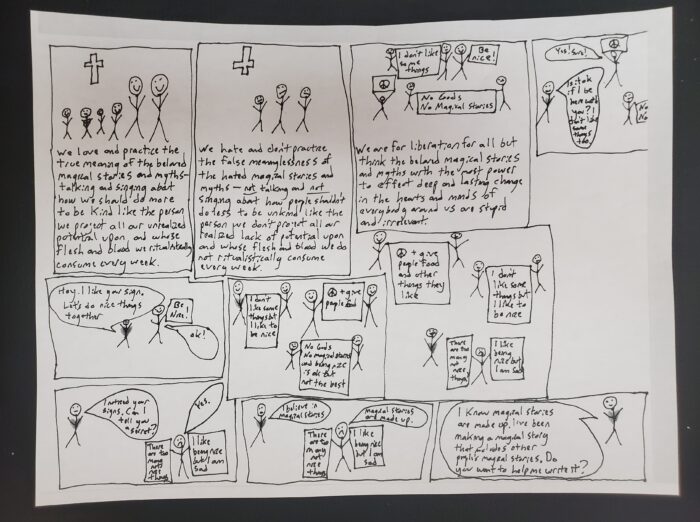 We love and practice the
true meaning of the beloved
magical stories and myths-
talking and singing about
how we should do more
to be kind like the person
we project all our unrealized
potential upon, and whose
flesh and blood we ritualistically
consume every week.
We hate and don't practice
the false meaninglessness of
the hated magical stories and
myths — not talking and not
singing about how people shouldn't
do less to be unkind like the
person we don't project all our
realized lack of potential upon
and whose flesh and blood we do
not ritualistically consume
every week.
I don't like
some
things
Be
nice!
No Gods
No Magical Stories
We are for liberation for all but
think the beloved magical stories
and myths with the most power
to effect deep and lasting change
in the hearts and minds of
everybody around us are stupid
and irrelevant.
Yes! Sure!
Is it ok
if I be
here with
you? I
don't like
some
things
too.
No
No
Hey. I like your sign.
Let's do nice things
together
Be
Nice!
OK!
I don't
like some
things but
I like to
be nice
+ give
people food
No Gods
No magical stories
and being nice
is ok but
not the best
+ give
people food
and other
things they
like
I don't
like some
things but
I like to
be nice
There
are too
many
not nice
things
I like
being
nice but
I am sad
I noticed your
signs. Can I
tell you
a secret?
Yes.
There
are too
many
not nice
things
I like
being nice
but I am
sad
I believe in
magical stories
magical stories
are made up.
There
are too
many
not nice
things
I like
being nice
but I am
sad
I know magical stories
are made up. I've been
making a magical story
that includes other
people's magical stories. Do
you want to help me write it?